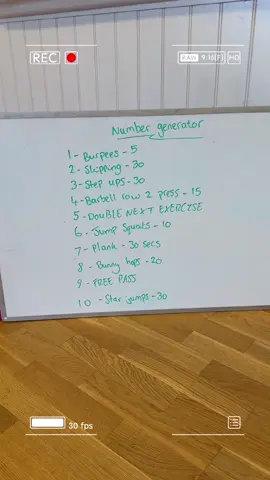 REC
RAW 9:16(F) HD
Number generator
1 - Burpees - 5
2 - Skipping - 30
3 - Step ups - 30
4 - Barbell row 2 press - 15
5 - DOUBLE NEXT EXERCISE
6 - Jump Squats - 10
7 - Plank - 30 secs
8 - Bunny hops - 20
9 - FREE PASS
10 - Star jumps - 30
30 fps